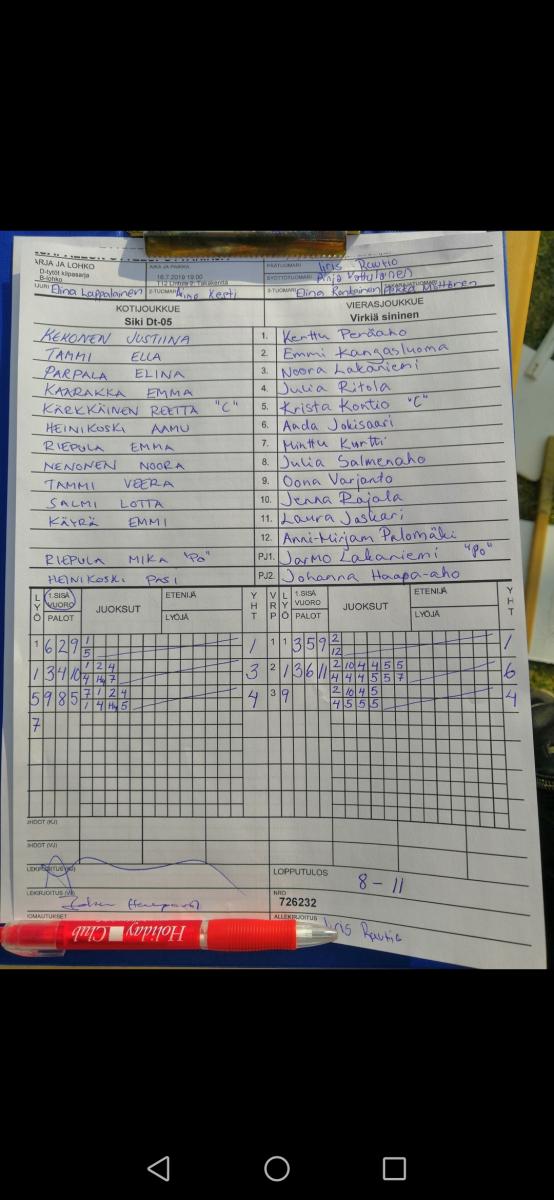 ARJA JA LOHKO
D-tytöt kilpasarja
B-lohko
AIKA JA PAIKKA
16.7.2019 19.00
PÄÄTUOMARI Iris Rautio
SYÖTTÖTUOMARI Anja
Elina Lappalainen 2-TUOMARI Aino 3-TUOMARI Elina
KOTIJOUKKUE VIERASJOUKKUE
Siki Dt-05 Virkiä sininen
KEKONEN JUSTIINA 1. Kerttu Peräaho
TAMMI ELLA 2. Emmi Kangasluoma
PARPALA ELINA 3. Noora Lakaniemi
KAARAKKA EMMA 4. Julia Ritola
KÄRKKÄINEN REETTA "C" 5. Krista Kontio "C"
HEINIKOSKI AAMU 6. Aada Jokisaari
RIEPULA EMMA 7. Minttu Kurtti
NENONEN NOORA 8. Julia Salmenaho
TAMMI VEERA 9. Oona Varjanto
SALMI LOTTA 10. Jenna Rajala
KÄYRÄ EMMI 11. Laura Jaskari
12. Anni-Mirjam Palomäki
RIEPULA MIKA "PO" PJ1. Jarmo Lakaniemi "PO"
HEINIKOSKI PASI PJ2. Johanna Haapa-aho
LYÖ 1.SISÄ VUORO PALOT JUOKSUT ETENIJÄ LYÖJÄ YHT VRP LYÖ 1.SISÄ VUORO PALOT JUOKSUT ETENIJÄ LYÖJÄ YHT
1 6 2 9 1 1 1 1 3 5 9 2 1
5 12
1 3 4 10 1 2 4 3 2 1 3 6 11 2 10 4 4 5 5 6
4 4 4 5 5 7
5 9 8 5 7 1 2 4 4 3 9 2 10 4 5 4
4 5 5 5
7
JHDOT (KJ)
JHDOT (VJ)
LOPPUTULOS
8 - 11
NRO
726232
LEKIRJOITUS (VJ)
ALLEKIRJOITUS
Iris Rautio
Holiday Club